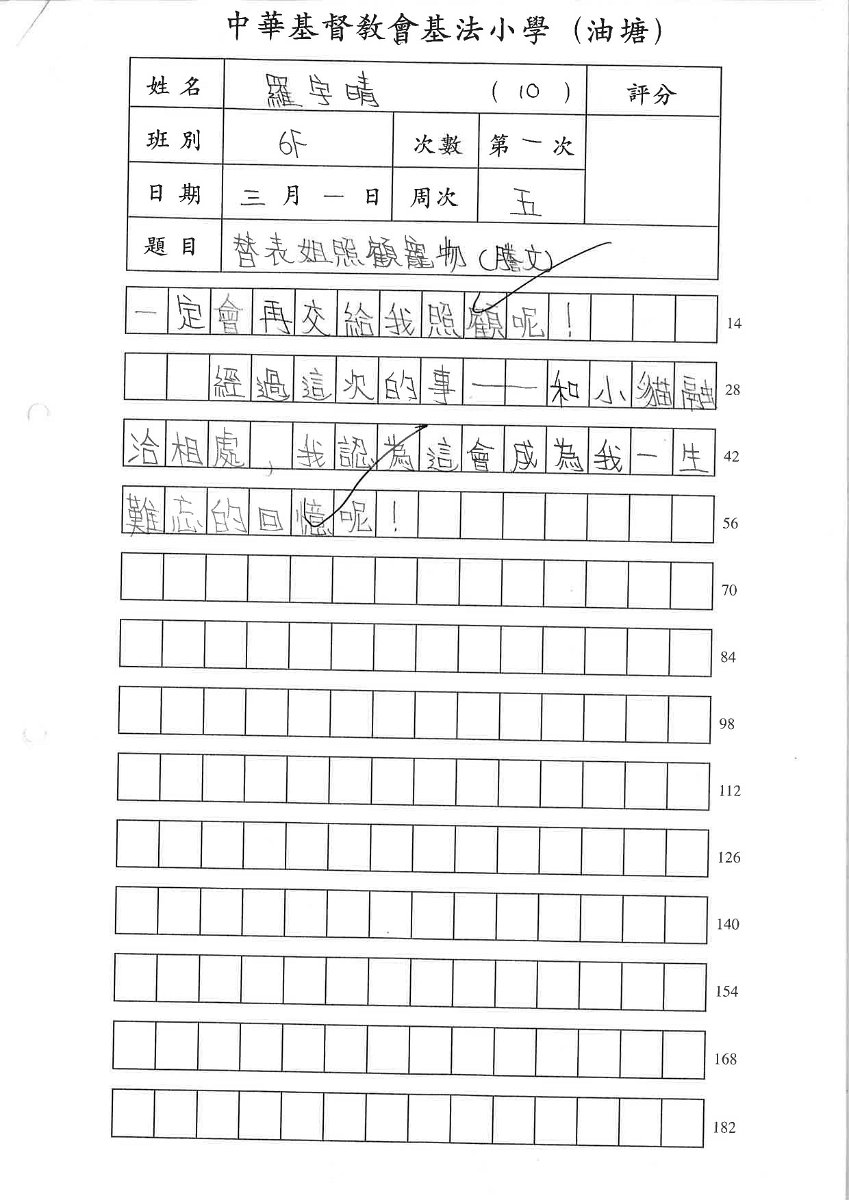 中華基督教會基法小學（油塘）
姓名 羅宇晴 (10) 評分
班別 6F 次數 第一次
日期 三月一日 周次 五
題目 替表姐照顧寵物(謄文)
一定會再交給我照顧呢！ 14
經過這次的事——和小貓融 28
洽相處，我認為這會成為我一生 42
難忘的回憶呢！ 56
70
84
98
112
126
140
154
168
182